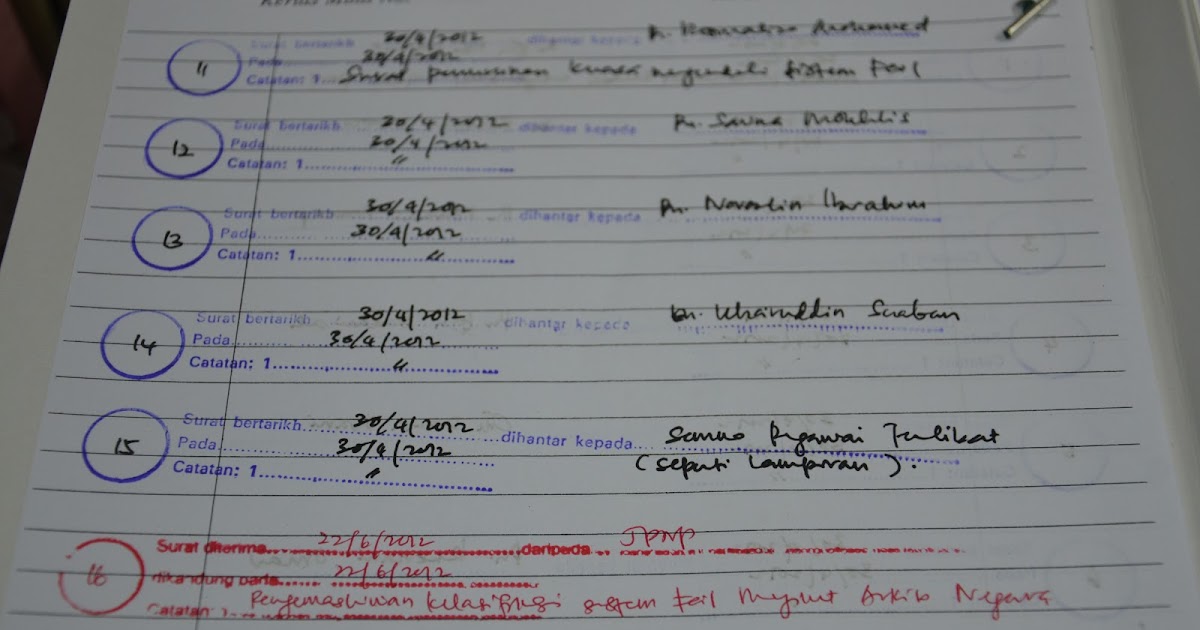 Surat bertarikh 30/4/2012 dihantar kepada Mohamed
11 Pada 30/4/2012
Catatan: 1... Surat penurunan kuasa mengendali sistem fail
Surat bertarikh 30/4/2012 dihantar kepada Pn. Salina
12 Pada 30/4/2012
Catatan: 1.......〃
Surat bertarikh 30/4/2012 dihantar kepada Pn. Norazlin Ibrahim
13 Pada........ 30/4/2012
Catatan: 1.......〃
Surat bertarikh 30/4/2012 dihantar kepada Khairuddin Saaban
14 Pada........ 30/4/2012
Catatan: 1.......〃
Surat bertarikh 30/4/2012 dihantar kepada... Semua Pegawai Terlibat
15 Pada 30/4/2012 (seperti Lampiran).
Catatan: 1.......〃
Surat diterima 22/6/2012 daripada JPNP
16 dikandung pada 22/6/2012
Catatan sistem fail Arkib Negara